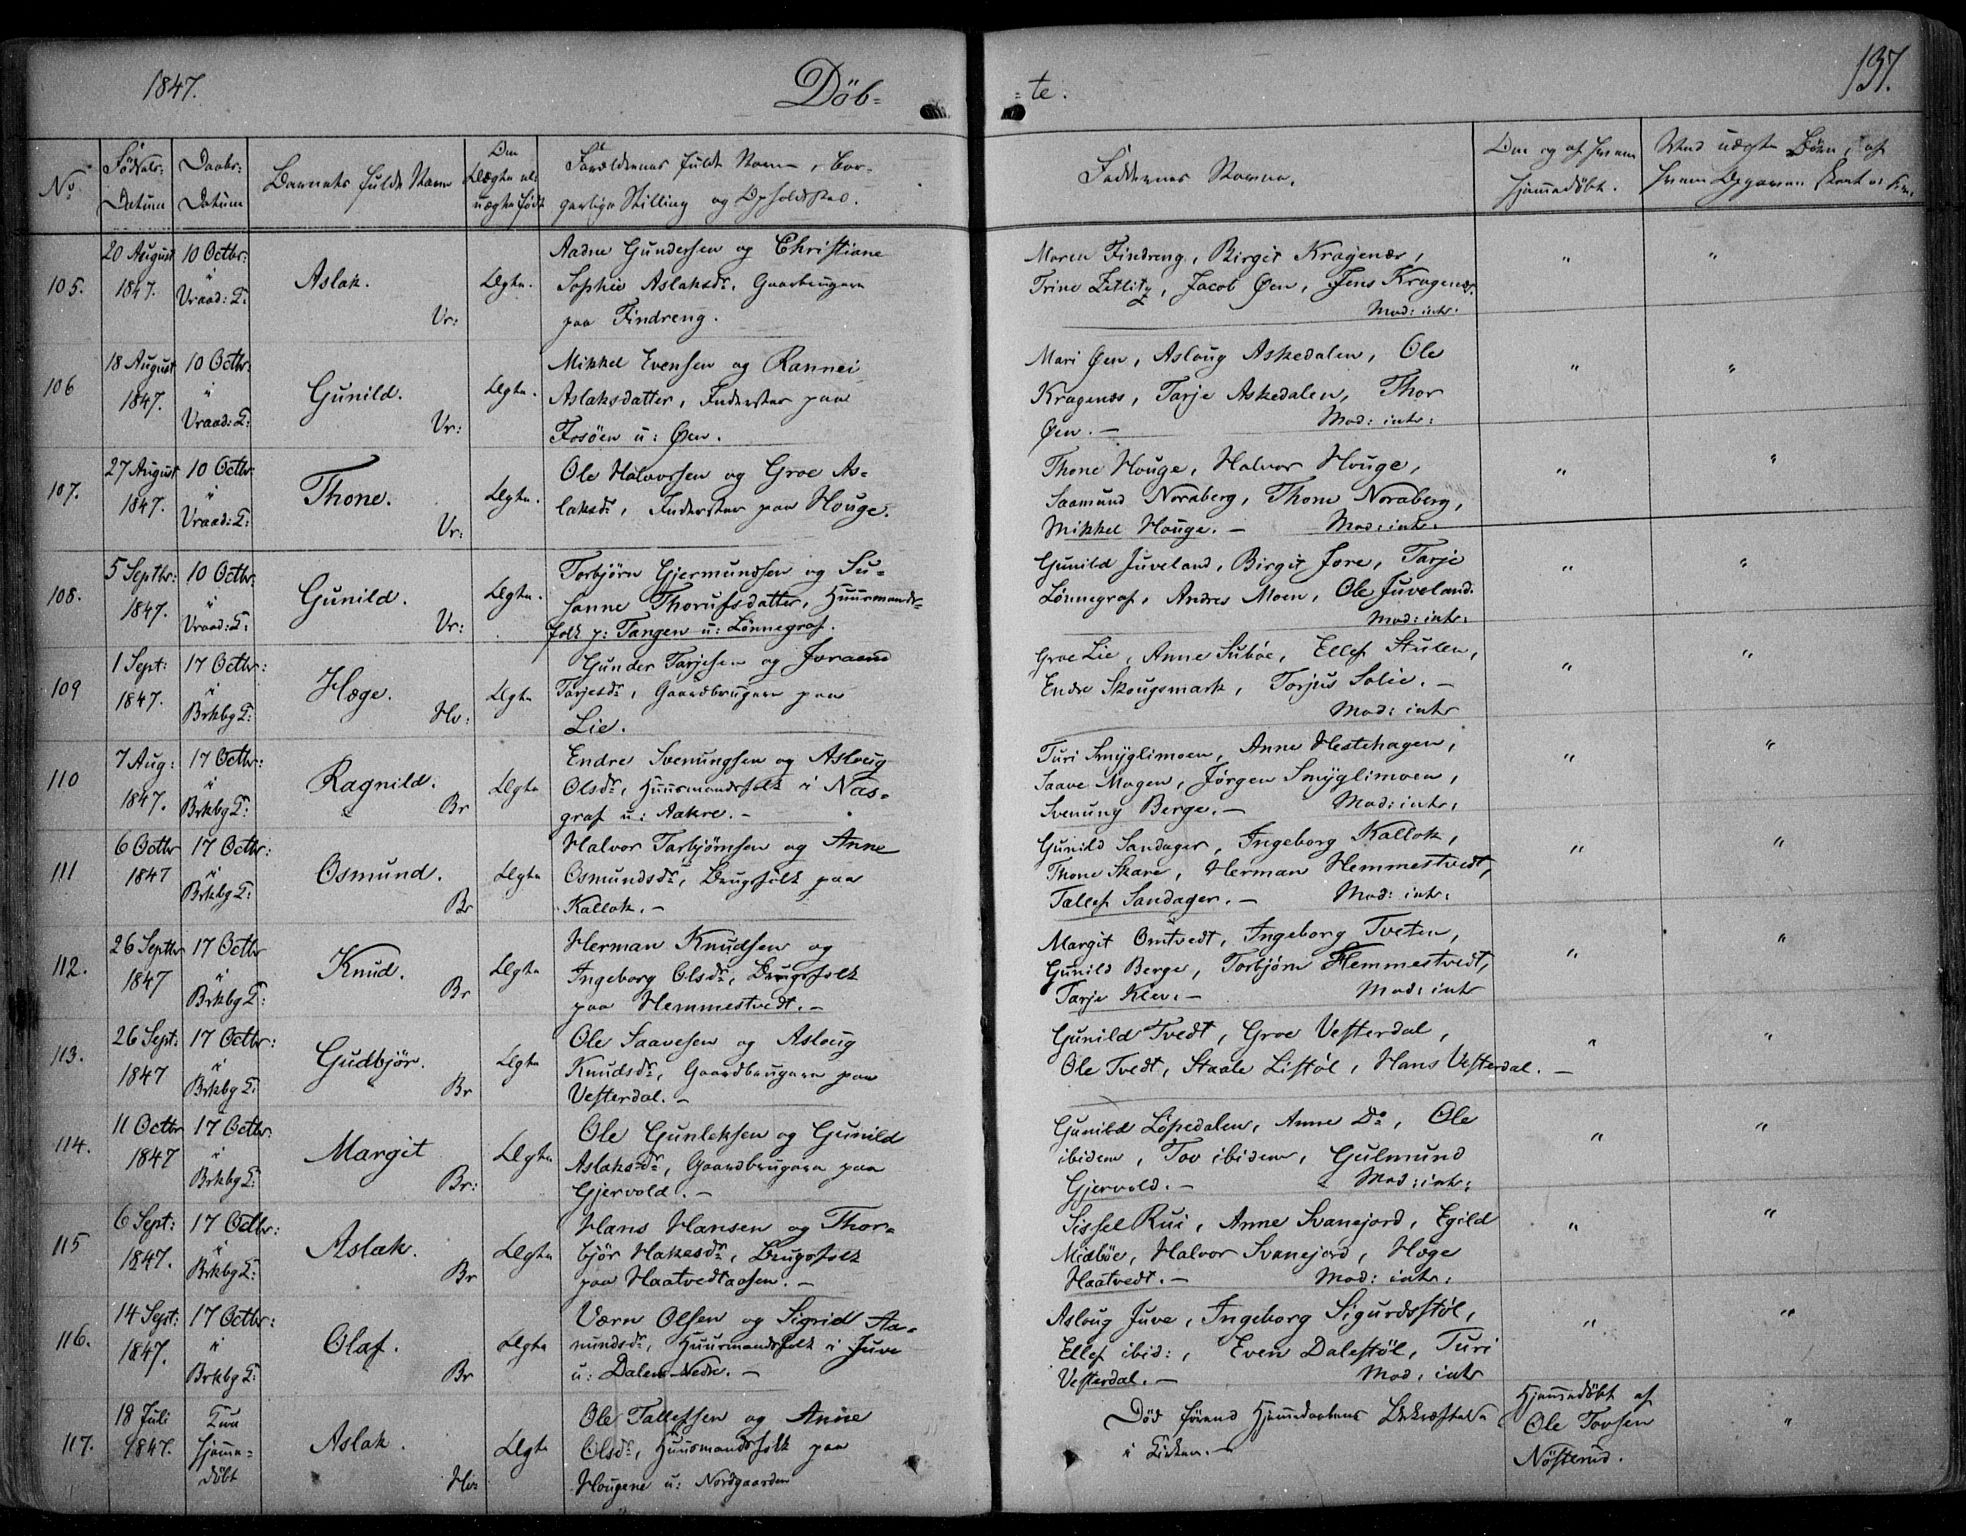 1847.
Döb-
-te.
137.
No.
Fødsels-
Datum
Daabs-
Datum
Barnets fulde Navn
Om
Ægte el:
uægte født
Forældrenes fulde Navn, bor-
gerlige Stilling og Opholdssted.
Faddernes Navne.
Om og af hvem
hjemmedøbt.
Ved uægte Børn, af
105.
20 August
1847.
10 Octbr:
"
Vraad: K:
Aslak.
Vr:
Ægte.
Aadne Gundersen og Christiane
Sophie Aslaksdr., Gaardbrugere
paa Findreng.
Maren Findreng, Birgit Kragenæs,
Trine Zetlitz, Jacob Øen, Jens Kragenæs.
Mod: intr:
"
"
106
18 August
1847.
10 Octbr:
"
Vraad: K:
Gunild.
Vr:
Ægte.
Mikkel Evensen og Rannei
Aslaksdatter, Inderster paa
Fosöen u: Øen.
Mari Øen, Aslaug Askedalen, Ole
Kragenæs, Tarje Askedalen, Thor
Øen. —
Mod: intr:
"
"
107.
27 August
1847.
10 Octbr
"
Vraad: K:
Thone.
Vr:
Ægte.
Ole Halvorsen og Groe As-
laksdr., Inderster paa Houge.
Thone Houge, Halvor Houge,
Saamund Noraberg, Thone Noraberg,
Mikkel Houge. —
Mod: intr.
"
"
108.
5 Septbr:
1847.
10 Octbr:
"
Vraad: K:
Gunild.
Vr:
Ægte.
Torbjörn Gjermundsen og Su-
sanne Thorufsdatter, Huusmands-
folk p: Tangen u: Lönnegrof.
Gunild Juveland, Birgit Jore, Tarje
Lönnegrof, Andres Moen, Ole Juveland.
Mod: intr:
"
"
109
1 Sept:
1847.
17 Octbr:
"
Brkbg K:
Hæge.
Hv:
Ægte
Gunder Tarjesen og Joraand
Tarjesdr., Gaardbrugere paa
Lie.
Groe Lie, Anne Suböe, Ellef Stulen,
Endre Skougsmark, Torjus Solie. —
Mod: intr
"
"
110
7 Aug:
1847.
17 Octbr:
"
Brkbg K:
Ragnild.
Br
Ægte
Endre Svenungsen og Aslaug
Olsdr., Huusmandsfolk i Nas-
graf u: Aakre. —
Turi Smÿglimoen, Anne Hestehagen,
Saave Mogen, Jørgen Smÿglimoen,
Svenung Berge. —
Mod: intr:
"
"
111
6 Octbr
1847
17 Octbr:
"
Brkbg K:
Osmund.
Br
Ægte
Halvor Torbjørnsen og Anne
Osmundsdr., Brugsfolk paa
Kallok. —
Gunild Sandager, Ingeborg Kallok,
Thone Skare, Herman Hemmestvedt,
Tallef Sandager. —
Mod: intr:
"
"
112.
26 Septbr
1847
17 Octbr
"
Brkbg K:
Knud.
Br
Ægte
Herman Knudsen og
Ingeborg Olsdr., Brugsfolk
paa Hemmestvedt. —
Margit Omtvedt, Ingeborg Tveten,
Gunild Berge, Torbjörn Hemmestvedt,
Tarje Klev. —
Mod: intr
"
"
113.
26 Sept:
1847
17 Octbr:
"
Brkbg K:
Gudbjör.
Br
Ægte
Ole Saavesen og Aslaug
Knudsdr., Gaardbrugere paa
Vesterdal. —
Gunild Tvedt, Groe Vesterdal,
Ole Tvedt, Staale Listøl, Hans Vesterdal. —
"
"
114.
11 Octbr
1847
17 Octbr:
"
Brkbg K:
Margit
Br:
Ægte
Ole Gunleksen og Gunild
Aslaksdr., Gaardbrugere paa
Gjervold. —
Gunild Löpedalen, Anne Do., Ole
ibidem, Tov ibidem, Gulmund
Gjervold. —
Mod: intr:
"
"
115
6 Sept:
1847.
17 Octbr:
"
Brkbg K:
Aslak.
Br
Ægte
Hans Hansen og Thor-
björ Hakesdr., Brugsfolk
paa Haatvedtaasen. —
Sissel Rui, Anne Svanejord, Egild
Midböe, Halvor Svanejord, Hæge
Haatvedt. —
Mod: intr:
"
"
116.
14 Sept:
1847.
17 Octbr:
"
Brkbg K:
Olaf.
Br
Ægte
Værn Olsen og Sigrid Aa-
mundsdr., Huusmandsfolk i Juve
u: Dalen Nedre. —
Aslaug Juve, Ingeborg Sigurdsstøl,
Ellef ibid:, Even Dalestöl, Turi
Vesterdal. —
Mod: intr
"
"
117.
18 Juli
1847.
Kun
hjemme-
döbt
Aslak.
Hv:
Ægte
Ole Tallefsen og Anne
Olsdr., Huusmandsfolk paa
Hougene u: Nordgaarden
Död förend Hjemmedaabens Bekræftelse
i Kirken. —
Hjemmedöbt af
Ole Tovsen
Nösterud.
"